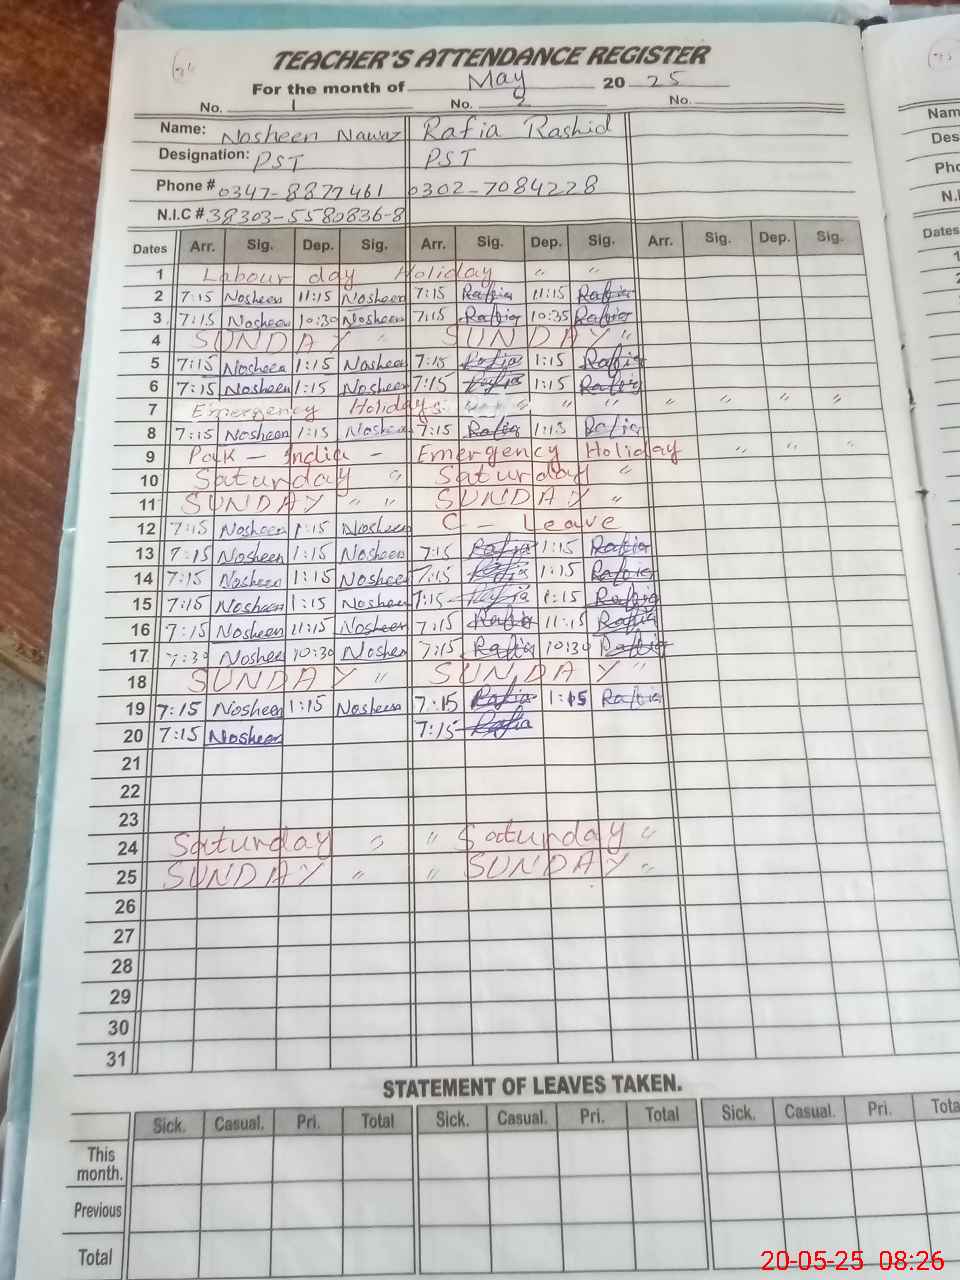 TEACHER'S ATTENDANCE REGISTER
For the month of May 20 25
No. 1 No. 2 No.
Name: Nosheen Nawaz Rafia Rashid
Designation: PST PST
Phone # 0347-8877461 0302-7084228
N.I.C # 38303-5580836-8
Dates Arr. Sig. Dep. Sig. Arr. Sig. Dep. Sig. Arr. Sig. Dep. Sig.
1 Labour day Holiday " "
2 7:15 Nosheen 11:15 Nosheen 7:15 Rafia 11:15 Rafia
3 7:15 Nosheen 10:30 Nosheen 7:15 Rafia 10:35 Rafia
4 SUNDAY " SUNDAY "
5 7:15 Nosheen 1:15 Nosheen 7:15 Rafia 1:15 Rafia
6 7:15 Nosheen 1:15 Nosheen 7:15 Rafia 1:15 Rafia
7 Emergency Holidays " " " " " " "
8 7:15 Nosheen 1:15 Nosheen 7:15 Rafia 1:15 Rafia
9 Pak - India - Emergency Holiday " " "
10 Saturday " Saturday "
11 SUNDAY " " SUNDAY "
12 7:15 Nosheen 1:15 Nosheen C - Leave
13 7:15 Nosheen 1:15 Nosheen 7:15 Rafia 1:15 Rafia
14 7:15 Nosheen 1:15 Nosheen 7:15 Rafia 1:15 Rafia
15 7:15 Nosheen 1:15 Nosheen 7:15 Rafia 1:15 Rafia
16 7:15 Nosheen 11:15 Nosheen 7:15 Rafia 11:15 Rafia
17 7:30 Nosheen 10:30 Nosheen 7:15 Rafia 10:30 Rafia
18 SUNDAY " SUNDAY "
19 7:15 Nosheen 1:15 Nosheen 7:15 Rafia 1:15 Rafia
20 7:15 Nosheen 7:15 Rafia
21
22
23
24 Saturday " " Saturday "
25 SUNDAY " " SUNDAY "
26
27
28
29
30
31
STATEMENT OF LEAVES TAKEN.
Sick. Casual. Pri. Total Sick. Casual. Pri. Total Sick. Casual. Pri.
This month.
Previous
Total
20-05-25 08:26